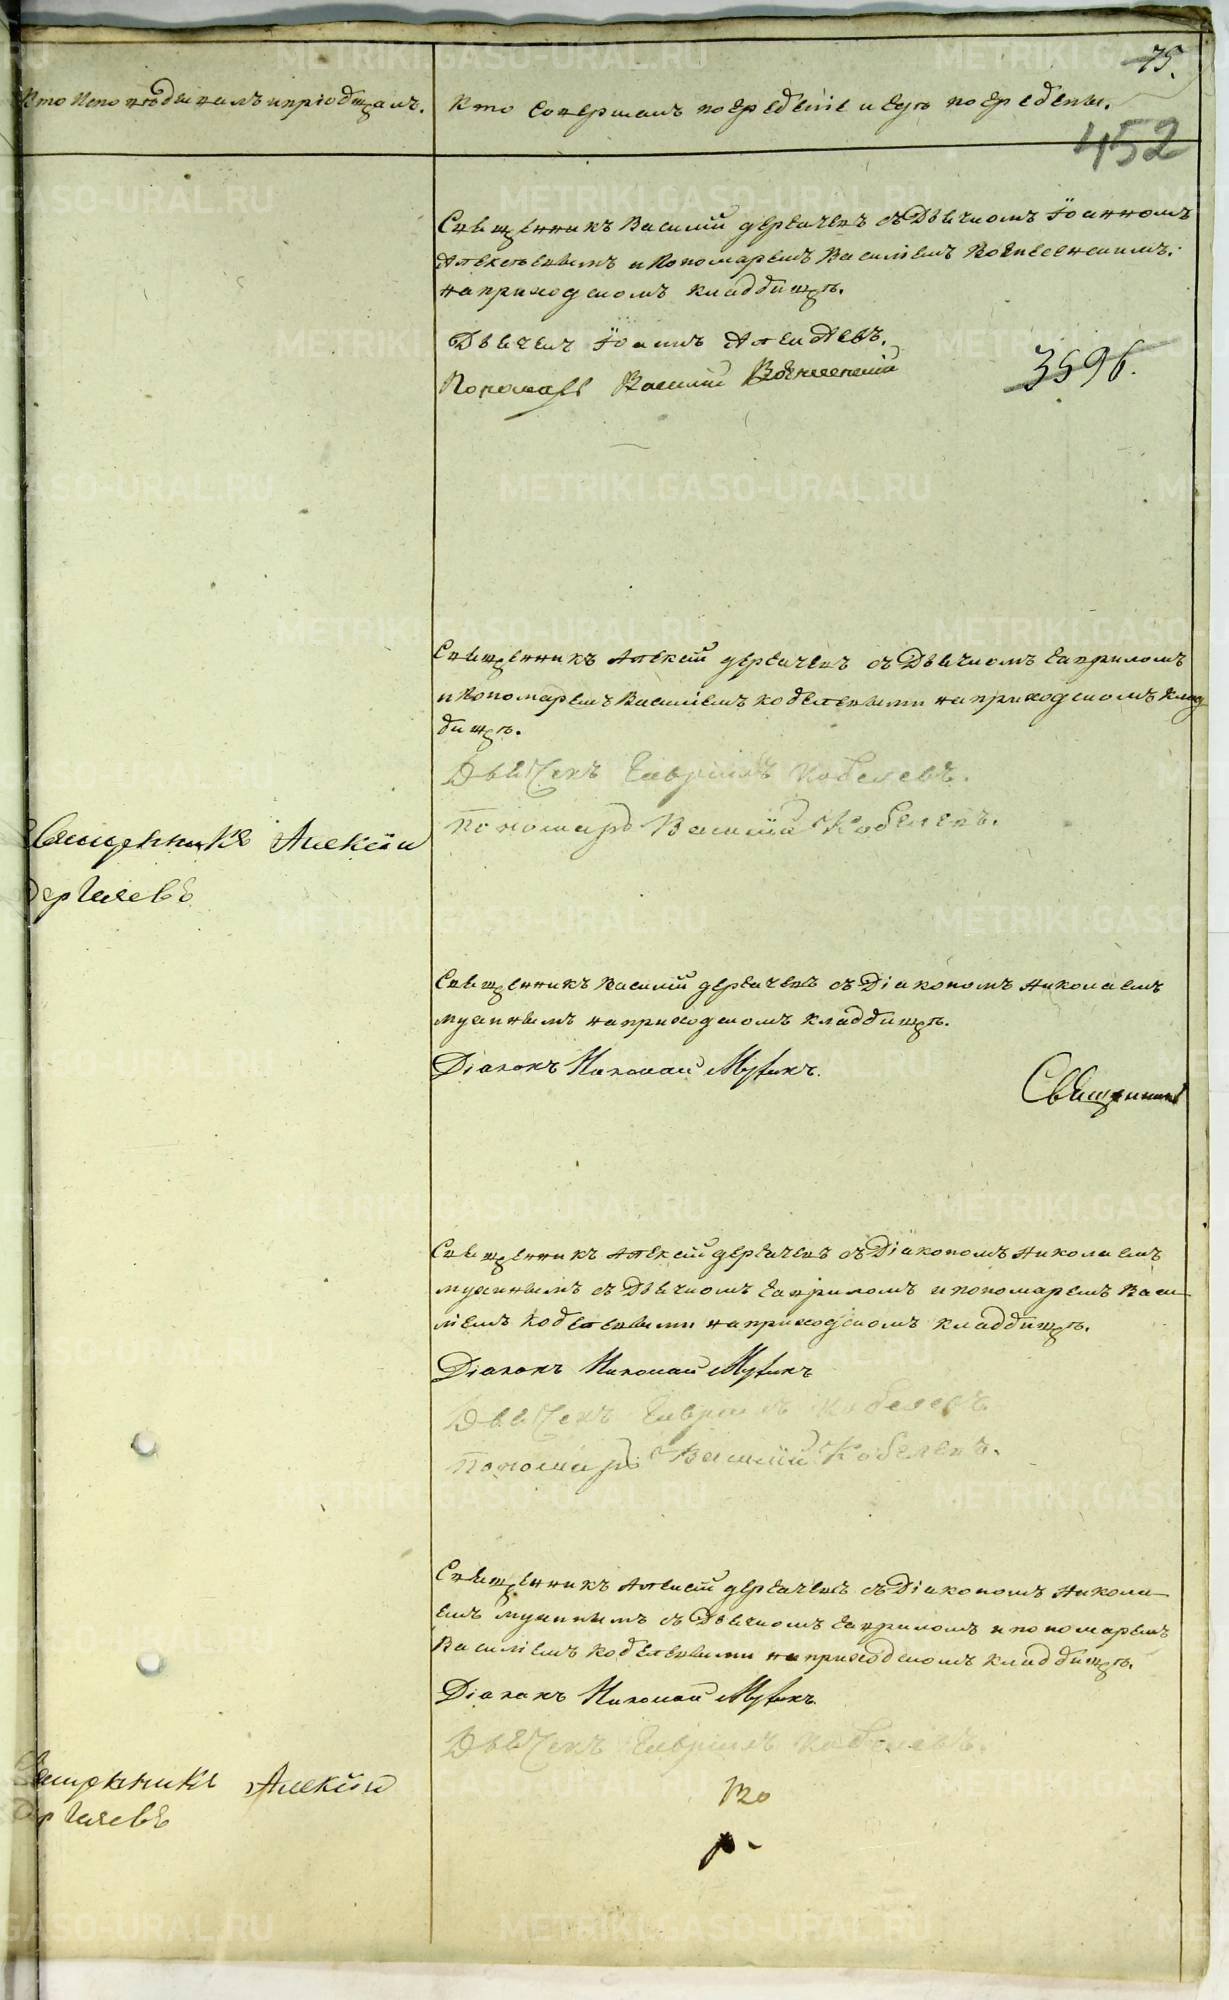 75.
Кто Исповѣдывалъ и пріобщалъ.
Кто Совершалъ погребѣніе и гдѣ погребены.
452
Священникъ Василій дергачевъ съ Дьячкомъ Іоанномъ
Алексѣевымъ и Пономаремъ Василіемъ Вознесенскимъ.
на приходскомъ кладбищѣ.
Дьячекъ Іоаннъ
Пономарь Василій Вознесенскій
3596.
Священникъ Алексій дергачевъ съ Дьячкомъ Гавриломъ
и Пономаремъ Василіемъ кобелевыми на приходскомъ клад
бищѣ.
Дьячекъ Гавріилъ Кобелевъ.
Пономарь Василій Кобелевъ.
Священникъ Алексій
дергачевъ
Священникъ Василій дергачевъ съ Діакономъ Николаемъ
мухинымъ на приходскомъ кладбищѣ.
Діаконъ Николай Мухинъ.
Священникъ
Священникъ Алексій дергачевъ съ Діакономъ Николаемъ
мухинымъ съ Дьячкомъ Гавриломъ и пономаремъ Васи-
ліемъ кобелевыми на приходскомъ кладбищѣ.
Діаконъ Николай Мухинъ
Дьячекъ Гавріилъ Кобелевъ
Пономарь Василій Кобелевъ.
Священникъ Алексій дергачевъ съ Діакономъ Никола-
емъ мухинымъ съ Дьячкомъ Гавриломъ и пономаремъ
Василіемъ кобелевыми на приходскомъ кладбищѣ.
Діаконъ Николай Мухинъ.
Дьячекъ Гавріилъ Кобелевъ.
Священникъ Алексій
дергачевъ
По
р-
METRIKI.GASO-URAL.RU